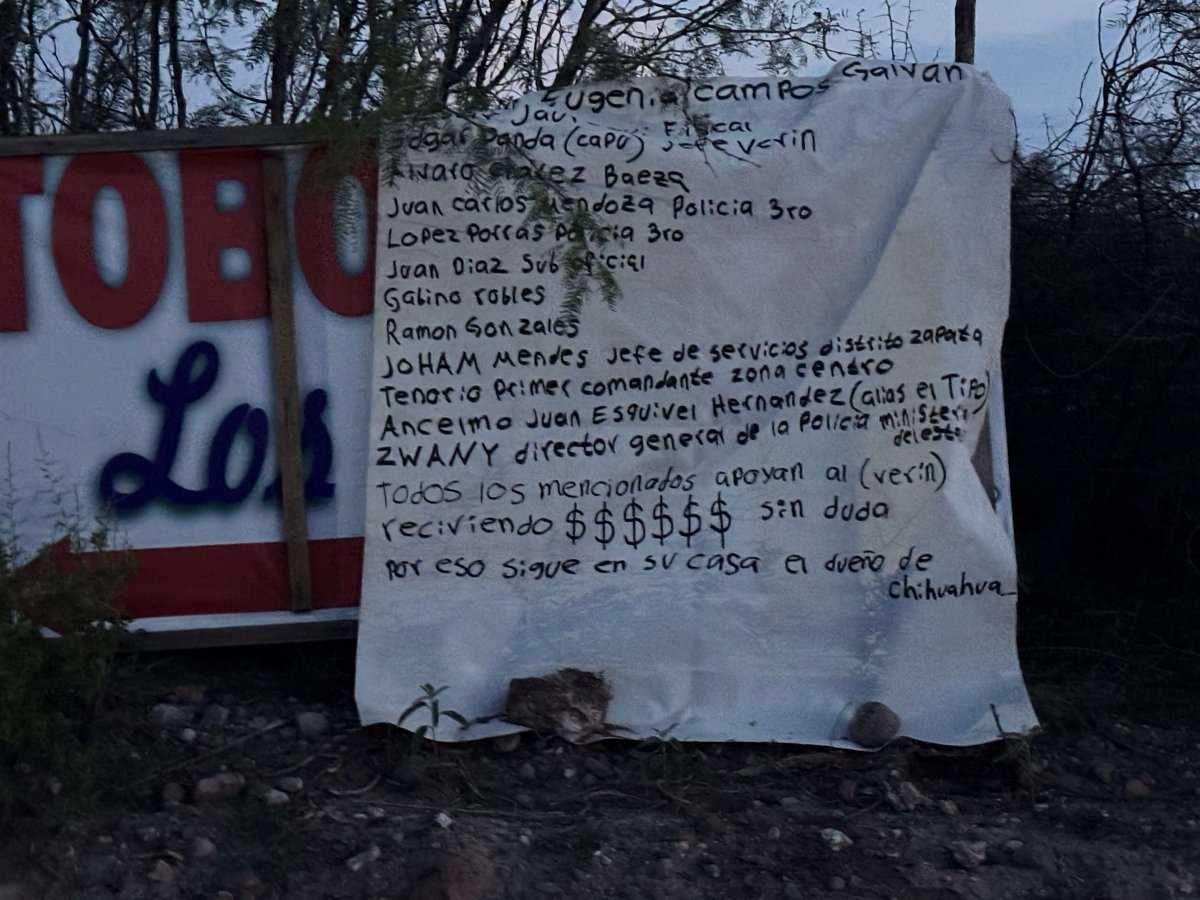 TOBO
Los
Eugenia campos Galvan
Javi
Edgar Panda (capu) Fiscal Jefe verin
Alvaro Chavez Baeza
Juan carlos Mendoza Policia 3ro
Lopez Porras Policia 3ro
Juan Diaz Sub oficial
Gabino robles
Ramon Gonzales
JOHAM Mendes Jefe de servicios distrito zapata
Tenorio Primer comandante zona cendro
Ancelmo Juan Esquivel Hernandez (alias el Tipo)
ZWANY director general de la Policia
del esta
Todos los mencionados apoyan al (verin)
reciviendo $$$$$$ sin duda
por eso sigue en su casa el dueño de
chihuahua